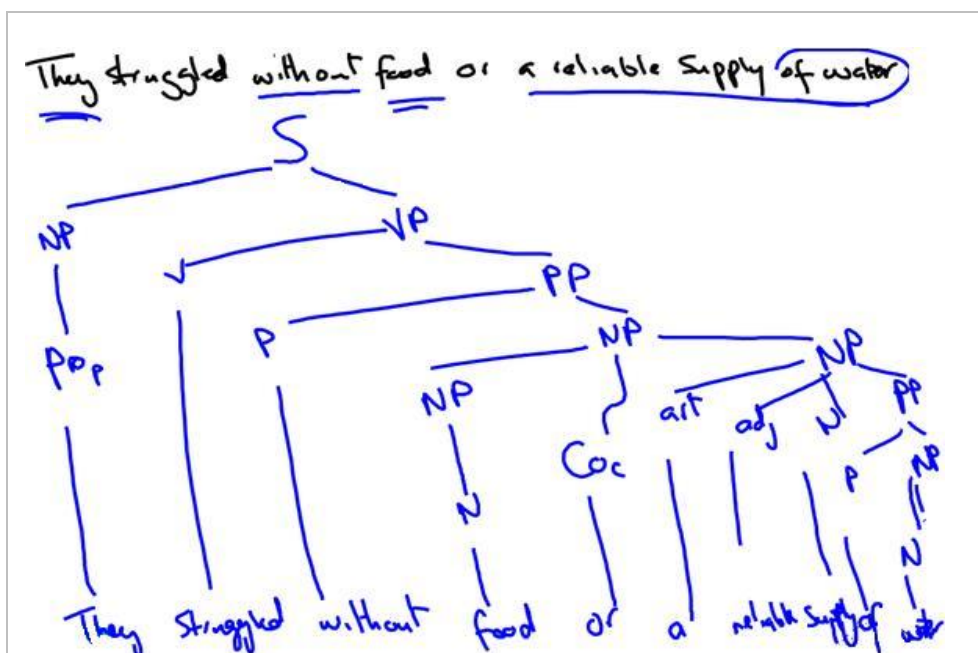 They struggled without food or a reliable Supply of water
S
NP VP
V PP
P NP NP
NP art adj N PP
Coc P NP
N N
They struggled without food or a reliable supply of water